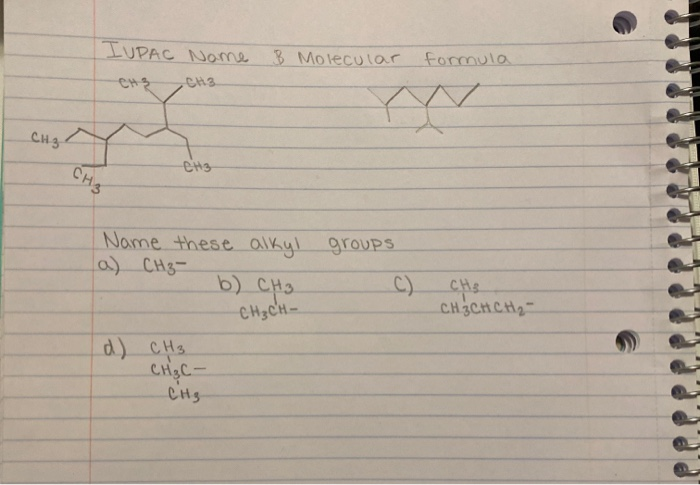 IUPAC Name & Molecular formula
CH3 CH3
CH3
CH3
CH3
Name these alkyl groups
a) CH3-
b) CH3
CH3CH-
c) CH3
CH3CHCH2-
d) CH3
CH3C-
CH3